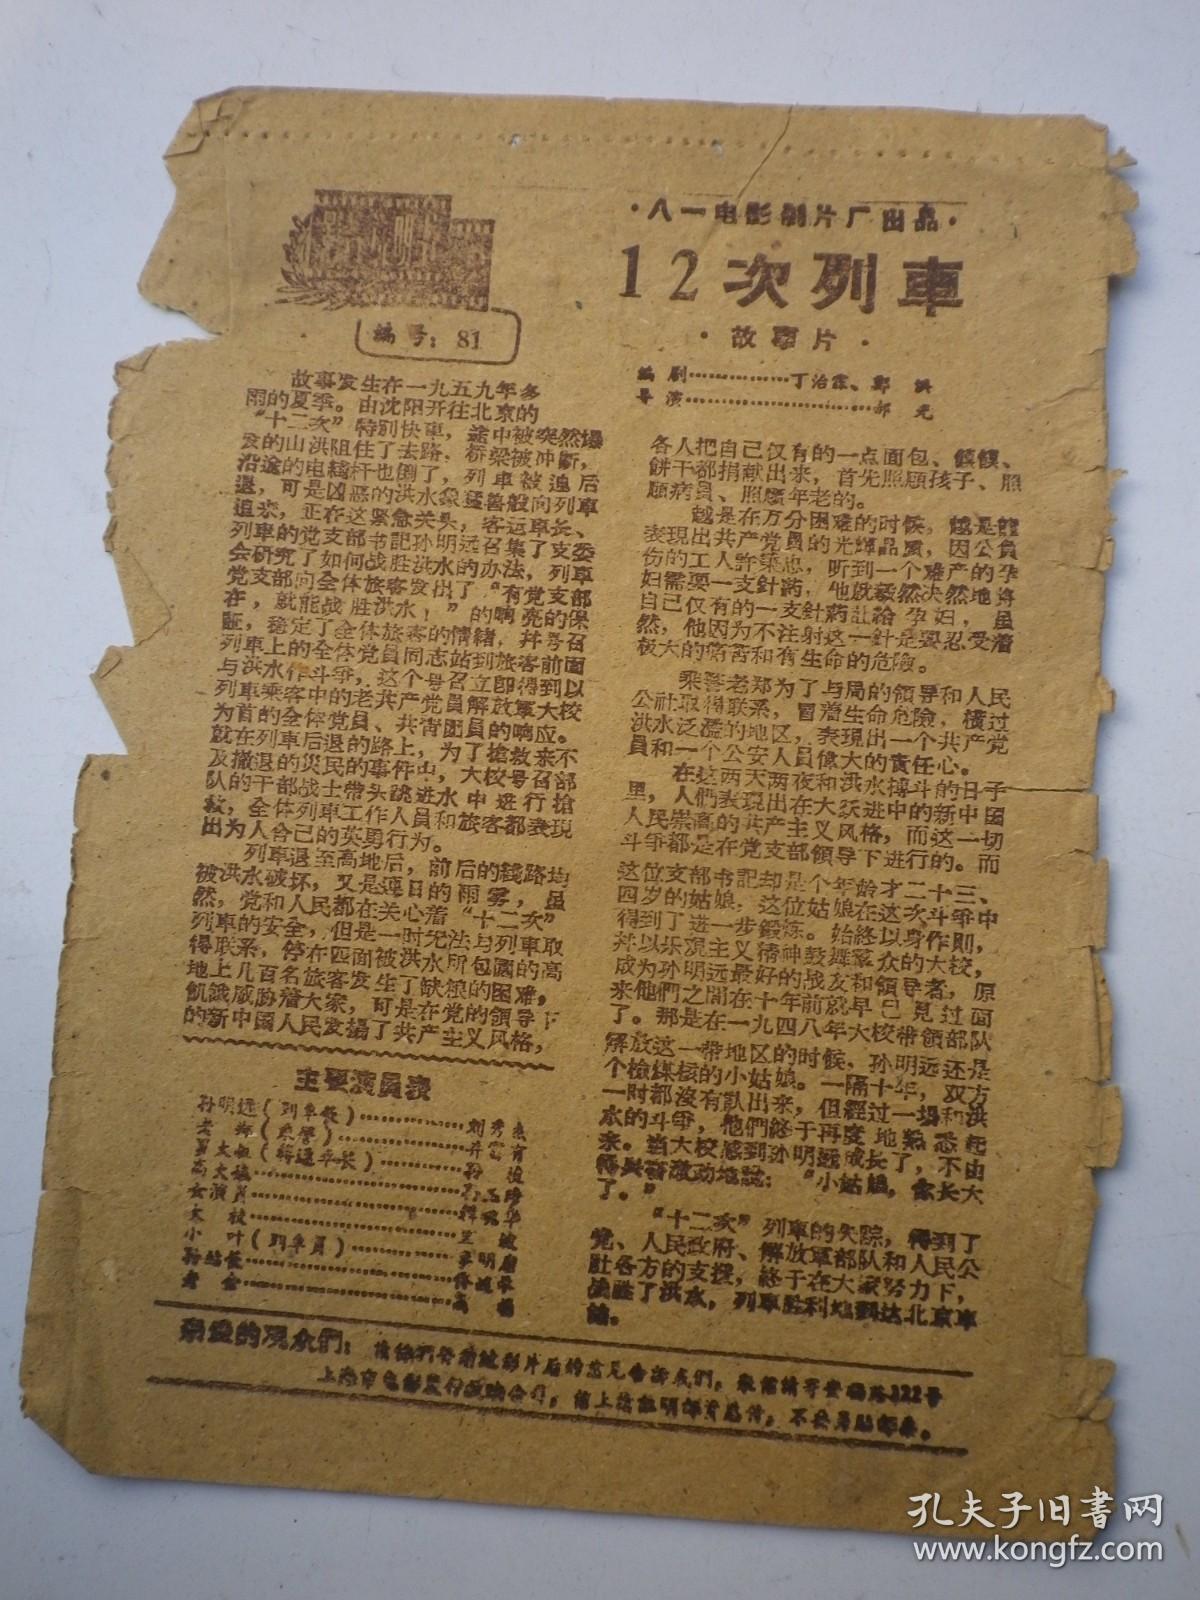 ·八一电影制片厂出品·
12次列車
·故事片·
編剧……………丁治霖、郑洪
导演……………………郝光
編号：81
故事发生在一九五九年多
雨的夏季。由沈阳开往北京的
“十二次”特別快車，途中被突然爆
发的山洪阻住了去路，桥梁被冲断，
沿途的电綫杆也倒了，列車被迫后
退，可是凶恶的洪水象猛兽般向列車
追来，正在这紧急关头，客运車长、
列車的党支部书記孙明远召集了支委
会研究了如何战胜洪水的办法，列車
党支部向全体旅客发出了“有党支部
在，就能战胜洪水！”的响亮的保
証，稳定了全体旅客的情緒，幷号召
列車上的全体党員同志站到旅客前面
与洪水作斗爭，这个号召立即得到以
列車乘客中的老共产党員解放軍大校
为首的全体党員、共青团員的响应。
就在列車后退的路上，为了搶救来不
及撤退的災民的事件中，大校号召部
队的干部战士带头跳进水中进行搶
救，全体列車工作人員和旅客都表現
出为人舍己的英勇行为。
列車退至高地后，前后的綫路均
被洪水破坏，又是連日的雨雾，虽
然，党和人民都在关心着“十二次”
列車的安全，但是一时无法与列車取
得联系，停在四面被洪水所包圍的高
地上几百名旅客发生了缺粮的困难，
飢餓威胁着大家，可是在党的領导下
的新中國人民发揚了共产主义风格，
各人把自己仅有的一点面包、饃饃、
餅干都捐献出来，首先照顾孩子、照
顾病員、照顾年老的。
越是在万分困难的时候，越是能
表現出共产党員的光輝品質，因公負
伤的工人許秉忠，听到一个难产的孕
妇需要一支針葯，他就毅然决然地将
自己仅有的一支針葯让給孕妇，虽
然，他因为不注射这一針是要忍受着
极大的痛苦和有生命的危險。
乘警老郑为了与局的領导和人民
公社取得联系，冒着生命危險，横过
洪水泛濫的地区，表現出一个共产党
員和一个公安人員偉大的責任心。
在这两天两夜和洪水搏斗的日子
里，人們表現出在大跃进中的新中國
人民崇高的共产主义风格，而这一切
斗爭都是在党支部領导下进行的。而
这位支部书記却是个年齡才二十三、
四岁的姑娘，这位姑娘在这次斗爭中
得到了进一步鍛炼。始終以身作則，
幷以乐观主义精神鼓舞羣众的大校，
成为孙明远最好的战友和領导者，原
来他們之間在十年前就早已見过面
了。那是在一九四八年大校带領部队
解放这一带地区的时候，孙明远还是
个檢煤核的小姑娘。一隔十年，双方
一时都沒有认出来，但經过一場和洪
水的斗爭，他們終于再度地熟悉起
来。当大校感到孙明远成长了，不由
得兴奋激动地說：“小姑娘，你长大
了。”
“十二次”列車的失踪，得到了
党、人民政府、解放軍部队和人民公
社各方的支援，終于在大家努力下，
战胜了洪水，列車胜利地到达北京車
站。
主要演員表
孙明远（列車长）……………刘秀杰
大校……………………里坡
小叶（列車員）……………李明
亲愛的观众們：請你們把看过影片后的意見告訴我們，来信請寄安福路322号
上海市电影发行放映公司，信上請註明邮資总付，不必另貼邮票。
孔夫子旧书网
www.kongfz.com